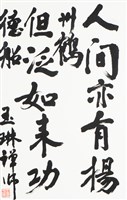 人间亦有扬
州鹤
但泛如来功
德船
玉琳禅师